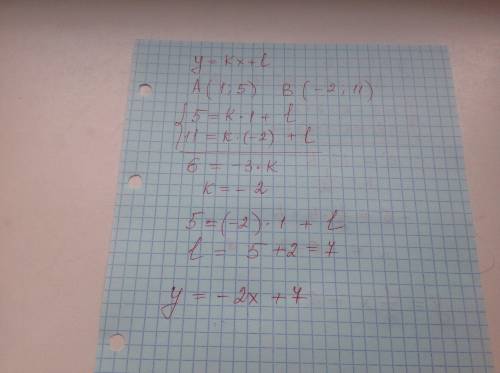 y = kx + l
A (1; 5) B (-2; 11)
{ 5 = k · 1 + l
{ 11 = k · (-2) + l
6 = -3 · k
k = - 2
5 = (-2) · 1 + l
l = 5 + 2 = 7
y = - 2x + 7